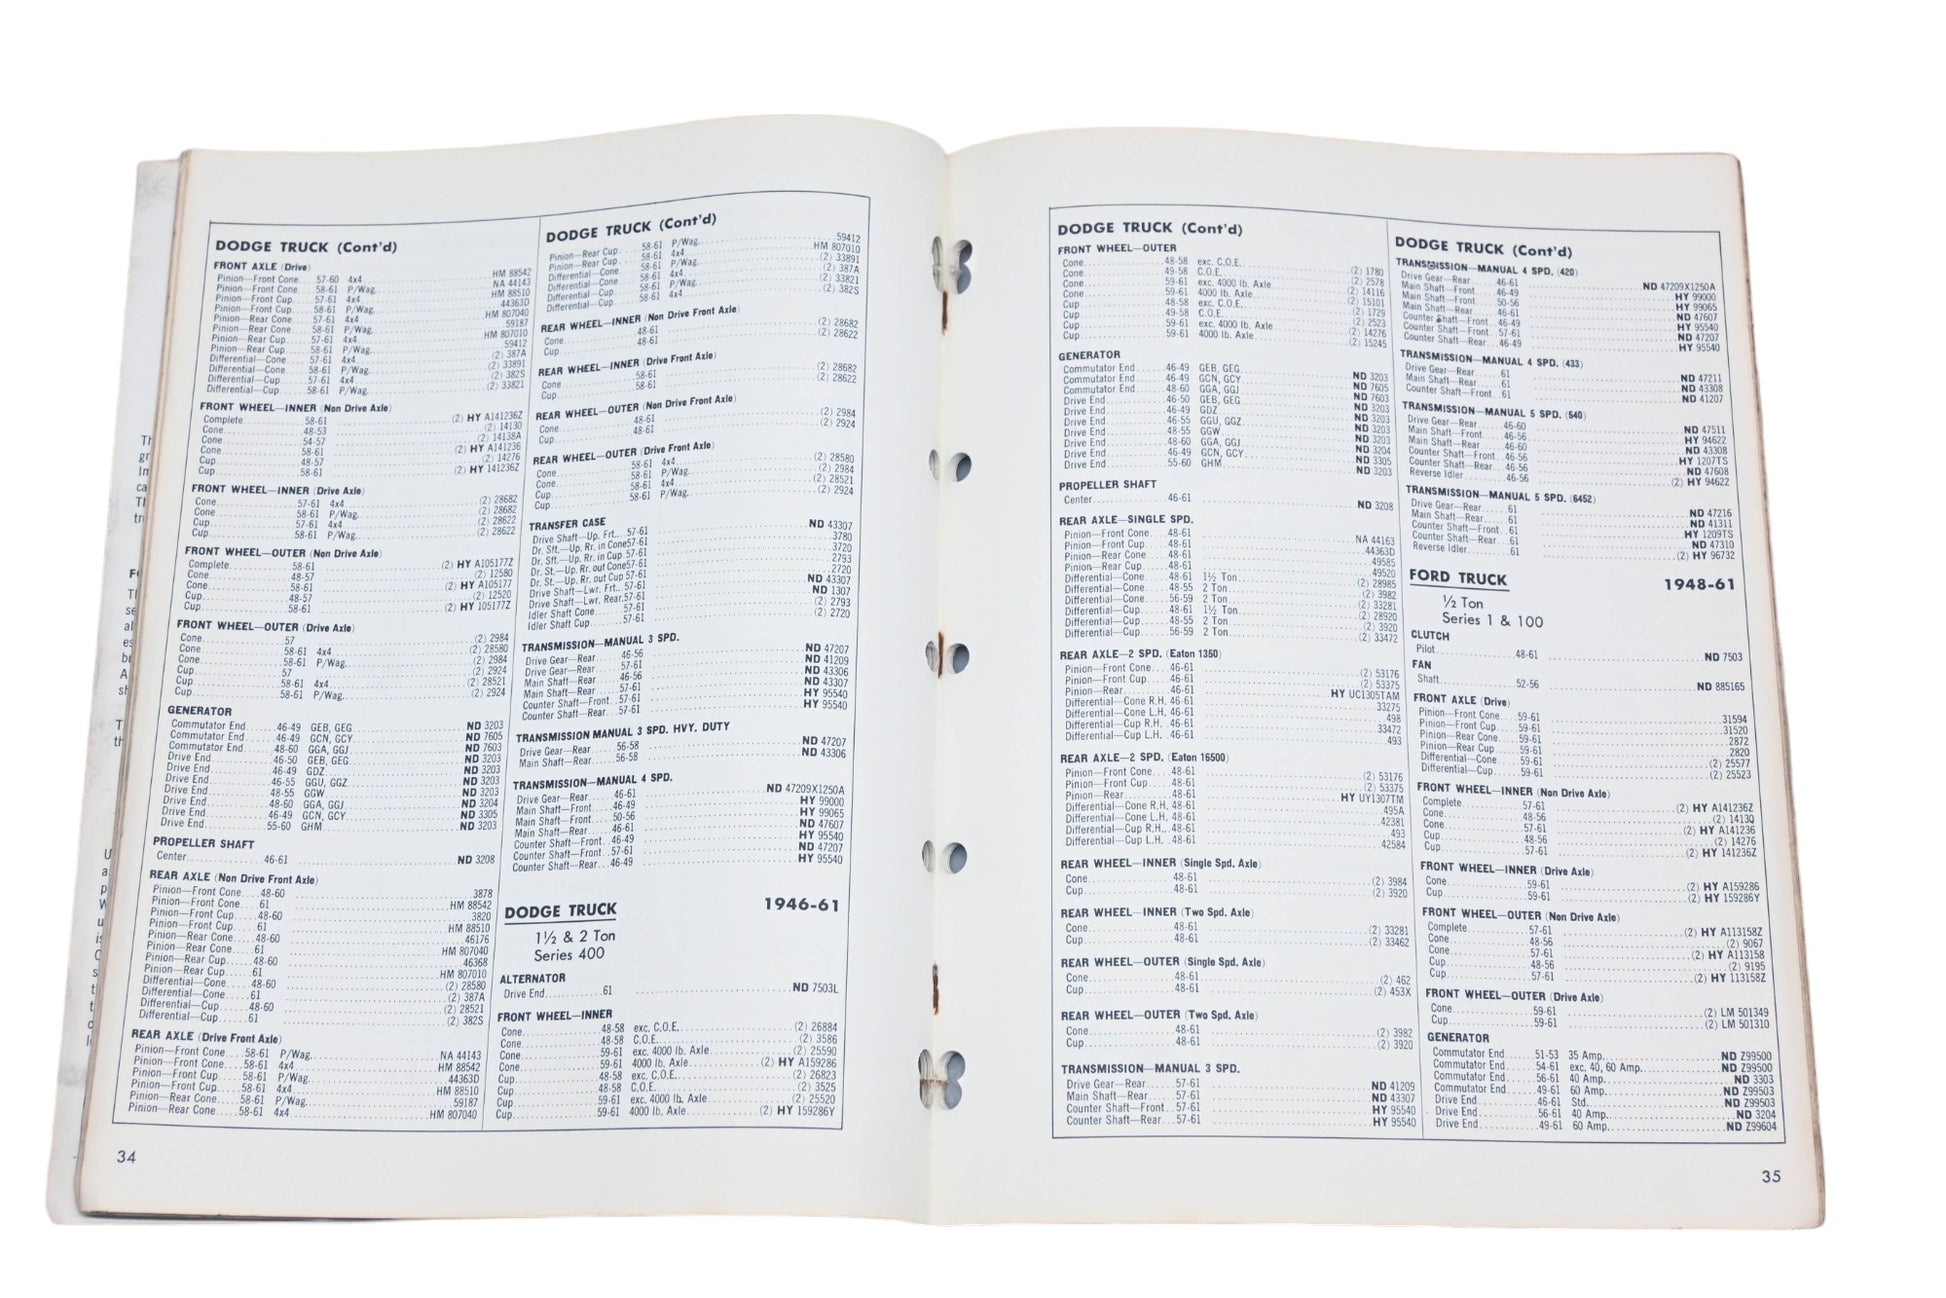 DODGE TRUCK (Cont'd)
FRONT AXLE (Drive)
Pinion—Front Cone 57-60 4x4 HM 88542
Pinion—Front Cone 58-61 P/Wag. NA 44143
Pinion—Front Cup 57-61 4x4 HM 88510
Pinion—Front Cup 58-61 P/Wag. 44363D
Pinion—Rear Cone 57-61 4x4 HM 807040
Pinion—Rear Cone 58-61 P/Wag. 59187
Pinion—Rear Cup 57-61 4x4 HM 807010
Pinion—Rear Cup 58-61 P/Wag. 59412
Differential—Cone 57-61 4x4 (2) 387A
Differential—Cone 58-61 P/Wag. (2) 33891
Differential—Cup 57-61 4x4 (2) 382S
Differential—Cup 58-61 P/Wag. (2) 33821
FRONT WHEEL—INNER (Non Drive Axle)
Complete 58-61 (2) HY A141236Z
Cone 48-53 (2) 14130
Cone 54-57 (2) 14138A
Cone 58-61 (2) HY A141236
Cup 48-57 (2) 14276
Cup 58-61 (2) HY 141236Z
FRONT WHEEL—INNER (Drive Axle)
Cone 57-61 4x4 (2) 28682
Cone 58-61 P/Wag. (2) 28682
Cup 57-61 4x4 (2) 28622
Cup 58-61 P/Wag. (2) 28622
FRONT WHEEL—OUTER (Non Drive Axle)
Complete 58-61 (2) HY A105177Z
Cone 48-57 (2) 12580
Cone 58-61 (2) HY A105177
Cup 48-57 (2) 12520
Cup 58-61 (2) HY 105177Z
FRONT WHEEL—OUTER (Drive Axle)
Cone 57 (2) 2984
Cone 58-61 4x4 (2) 28580
Cone 58-61 P/Wag. (2) 2984
Cup 57 (2) 2924
Cup 58-61 4x4 (2) 28521
Cup 58-61 P/Wag. (2) 2924
GENERATOR
Commutator End 46-49 GEB, GEG ND 3203
Commutator End 46-49 GCN, GCY ND 7605
Commutator End 48-60 GGA, GGJ ND 7603
Drive End 46-50 GEB, GEG ND 3203
Drive End 46-49 GDZ ND 3203
Drive End 46-55 GGU, GGZ ND 3203
Drive End 48-55 GGW ND 3203
Drive End 48-60 GGA, GGJ ND 3204
Drive End 46-49 GCN, GCY ND 3305
Drive End 55-60 GHM ND 3203
PROPELLER SHAFT
Center 46-61 ND 3208
REAR AXLE (Non Drive Front Axle)
Pinion—Front Cone 48-60 3878
Pinion—Front Cone 61 HM 88542
Pinion—Front Cup 48-60 3820
Pinion—Front Cup 61 HM 88510
Pinion—Rear Cone 48-60 46176
Pinion—Rear Cone 61 HM 807040
Pinion—Rear Cup 48-60 46368
Pinion—Rear Cup 61 HM 807010
Differential—Cone 48-60 (2) 28580
Differential—Cone 61 (2) 387A
Differential—Cup 48-60 (2) 28521
Differential—Cup 61 (2) 382S
REAR AXLE (Drive Front Axle)
Pinion—Front Cone 58-61 P/Wag. NA 44143
Pinion—Front Cone 58-61 4x4 HM 88542
Pinion—Front Cup 58-61 P/Wag. 44363D
Pinion—Front Cup 58-61 4x4 HM 88510
Pinion—Rear Cone 58-61 P/Wag. 59187
Pinion—Rear Cone 58-61 4x4 HM 807040
34
DODGE TRUCK (Cont'd)
Pinion—Rear Cup 58-61 P/Wag. 59412
Pinion—Rear Cup 58-61 4x4 HM 807010
Differential—Cone 58-61 P/Wag. (2) 33891
Differential—Cone 58-61 4x4 (2) 387A
Differential—Cup 58-61 P/Wag. (2) 33821
Differential—Cup 58-61 4x4 (2) 382S
REAR WHEEL—INNER (Non Drive Front Axle)
Cone 48-61 (2) 28682
Cup 48-61 (2) 28622
REAR WHEEL—INNER (Drive Front Axle)
Cone 58-61 (2) 28682
Cup 58-61 (2) 28622
REAR WHEEL—OUTER (Non Drive Front Axle)
Cone 48-61 (2) 2984
Cup 48-61 (2) 2924
REAR WHEEL—OUTER (Drive Front Axle)
Cone 58-61 4x4 (2) 28580
Cone 58-61 P/Wag. (2) 2984
Cup 58-61 4x4 (2) 28521
Cup 58-61 P/Wag. (2) 2924
TRANSFER CASE
Drive Shaft—Up. Frt. 57-61 ND 43307
Dr. Sft.—Up. Rr. in Cone 57-61 3780
Dr. Sft.—Up. Rr. in Cup 57-61 3720
Dr. St.—Up. Rr. out Cone 57-61 2793
Dr. St.—Up. Rr. out Cup 57-61 2720
Drive Shaft—Lwr. Frt. 57-61 ND 43307
Drive Shaft—Lwr. Rear 57-61 ND 1307
Idler Shaft Cone 57-61 (2) 2793
Idler Shaft Cup 57-61 (2) 2720
TRANSMISSION—MANUAL 3 SPD.
Drive Gear—Rear 46-56 ND 47207
Drive Gear—Rear 57-61 ND 41209
Main Shaft—Rear 46-56 ND 43306
Main Shaft—Rear 57-61 ND 43307
Counter Shaft—Front 57-61 HY 95540
Counter Shaft—Rear 57-61 HY 95540
TRANSMISSION MANUAL 3 SPD. HVY. DUTY
Drive Gear—Rear 56-58 ND 47207
Main Shaft—Rear 56-58 ND 43306
TRANSMISSION—MANUAL 4 SPD.
Drive Gear—Rear 46-61 ND 47209X1250A
Main Shaft—Front 46-49 HY 99000
Main Shaft—Front 50-56 HY 99065
Main Shaft—Rear 46-61 ND 47607
Counter Shaft—Front 46-49 HY 95540
Counter Shaft—Front 57-61 ND 47207
Counter Shaft—Rear 46-49 HY 95540
DODGE TRUCK 1946-61
1½ & 2 Ton
Series 400
ALTERNATOR
Drive End 61 ND 7503L
FRONT WHEEL—INNER
Cone 48-58 exc. C.O.E. (2) 26884
Cone 48-58 C.O.E. (2) 3586
Cone 59-61 exc. 4000 lb. Axle (2) 25590
Cone 59-61 4000 lb. Axle (2) HY A159286
Cup 48-58 exc. C.O.E. (2) 26823
Cup 48-58 C.O.E. (2) 3525
Cup 59-61 exc. 4000 lb. Axle (2) 25520
Cup 59-61 4000 lb. Axle (2) HY 159286Y
DODGE TRUCK (Cont'd)
FRONT WHEEL—OUTER
Cone 48-58 exc. C.O.E. (2) 1780
Cone 49-58 C.O.E. (2) 2578
Cone 59-61 exc. 4000 lb. Axle (2) 14116
Cone 59-61 4000 lb. Axle (2) 15101
Cup 48-58 exc. C.O.E. (2) 1729
Cup 49-58 C.O.E. (2) 2523
Cup 59-61 exc. 4000 lb. Axle (2) 14276
Cup 59-61 4000 lb. Axle (2) 15245
GENERATOR
Commutator End 46-49 GEB, GEG ND 3203
Commutator End 46-49 GCN, GCY ND 7605
Commutator End 48-60 GGA, GGJ ND 7603
Drive End 46-50 GEB, GEG ND 3203
Drive End 46-49 GDZ ND 3203
Drive End 46-55 GGU, GGZ ND 3203
Drive End 48-55 GGW ND 3203
Drive End 48-60 GGA, GGJ ND 3204
Drive End 46-49 GCN, GCY ND 3305
Drive End 55-60 GHM ND 3203
PROPELLER SHAFT
Center 46-61 ND 3208
REAR AXLE—SINGLE SPD.
Pinion—Front Cone 48-61 NA 44163
Pinion—Front Cup 48-61 44363D
Pinion—Rear Cone 48-61 49585
Pinion—Rear Cup 48-61 49520
Differential—Cone 48-61 1½ Ton (2) 28985
Differential—Cone 48-55 2 Ton (2) 3982
Differential—Cone 56-59 2 Ton (2) 33281
Differential—Cup 48-61 1½ Ton (2) 28920
Differential—Cup 48-55 2 Ton (2) 3920
Differential—Cup 56-59 2 Ton (2) 33472
REAR AXLE—2 SPD. (Eaton 1350)
Pinion—Front Cone 46-61 (2) 53176
Pinion—Front Cup 46-61 (2) 53375
Pinion—Rear 46-61 HY UC1305TAM
Differential—Cone R.H. 46-61 33275
Differential—Cone L.H. 46-61 498
Differential—Cup R.H. 46-61 33472
Differential—Cup L.H. 46-61 493
REAR AXLE—2 SPD. (Eaton 16500)
Pinion—Front Cone 48-61 (2) 53176
Pinion—Front Cup 48-61 (2) 53375
Pinion—Rear 48-61 HY UY1307TM
Differential—Cone R.H. 48-61 495A
Differential—Cone L.H. 48-61 42381
Differential—Cup R.H. 48-61 493
Differential—Cup L.H. 48-61 42584
REAR WHEEL—INNER (Single Spd. Axle)
Cone 48-61 (2) 3984
Cup 48-61 (2) 3920
REAR WHEEL—INNER (Two Spd. Axle)
Cone 48-61 (2) 33281
Cup 48-61 (2) 33462
REAR WHEEL—OUTER (Single Spd. Axle)
Cone 48-61 (2) 462
Cup 48-61 (2) 453X
REAR WHEEL—OUTER (Two Spd. Axle)
Cone 48-61 (2) 3982
Cup 48-61 (2) 3920
TRANSMISSION—MANUAL 3 SPD.
Drive Gear—Rear 57-61 ND 41209
Main Shaft—Rear 57-61 ND 43307
Counter Shaft—Front 57-61 HY 95540
Counter Shaft—Rear 57-61 HY 95540
DODGE TRUCK (Cont'd)
TRANSMISSION—MANUAL 4 SPD. (420)
Drive Gear—Rear 46-61 ND 47209X1250A
Main Shaft—Front 46-49 HY 99000
Main Shaft—Front 50-56 HY 99065
Main Shaft—Rear 46-61 ND 47607
Counter Shaft—Front 46-49 HY 95540
Counter Shaft—Front 57-61 ND 47207
Counter Shaft—Rear 46-49 HY 95540
TRANSMISSION—MANUAL 4 SPD. (433)
Drive Gear—Rear 61 ND 47211
Main Shaft—Rear 61 ND 43308
Counter Shaft—Front 61 ND 41207
TRANSMISSION—MANUAL 5 SPD. (540)
Drive Gear—Rear 46-60 ND 47511
Main Shaft—Front 46-56 HY 94622
Main Shaft—Rear 46-60 ND 43308
Counter Shaft—Front 46-56 HY 1207TS
Counter Shaft—Rear 46-56 ND 47608
Reverse Idler 46-56 (2) HY 94622
TRANSMISSION—MANUAL 5 SPD. (6452)
Drive Gear—Rear 61 ND 47216
Main Shaft—Rear 61 ND 41311
Counter Shaft—Front 61 HY 1209TS
Counter Shaft—Rear 61 ND 47310
Reverse Idler 61 (2) HY 96732
FORD TRUCK 1948-61
½ Ton
Series 1 & 100
CLUTCH
Pilot 48-61 ND 7503
FAN
Shaft 52-56 ND 885165
FRONT AXLE (Drive)
Pinion—Front Cone 59-61 31594
Pinion—Front Cup 59-61 31520
Pinion—Rear Cone 59-61 2872
Pinion—Rear Cup 59-61 2820
Differential—Cone 59-61 (2) 25577
Differential—Cup 59-61 (2) 25523
FRONT WHEEL—INNER (Non Drive Axle)
Complete 57-61 (2) HY A141236Z
Cone 48-56 (2) 14130
Cone 57-61 (2) HY A141236
Cup 48-56 (2) 14276
Cup 57-61 (2) HY 141236Z
FRONT WHEEL—INNER (Drive Axle)
Cone 59-61 (2) HY A159286
Cup 59-61 (2) HY 159286Y
FRONT WHEEL—OUTER (Non Drive Axle)
Complete 57-61 (2) HY A113158Z
Cone 48-56 (2) 9067
Cone 57-61 (2) HY A113158
Cup 48-56 (2) 9195
Cup 57-61 (2) HY 113158Z
FRONT WHEEL—OUTER (Drive Axle)
Cone 59-61 (2) LM 501349
Cup 59-61 (2) LM 501310
GENERATOR
Commutator End 51-53 35 Amp. ND Z99500
Commutator End 54-61 exc. 40, 60 Amp. ND Z99500
Commutator End 56-61 40 Amp. ND 3303
Commutator End 49-61 60 Amp. ND Z99503
Drive End 46-61 Std. ND Z99503
Drive End 56-61 40 Amp. ND 3204
Drive End 49-61 60 Amp. ND Z99604
35